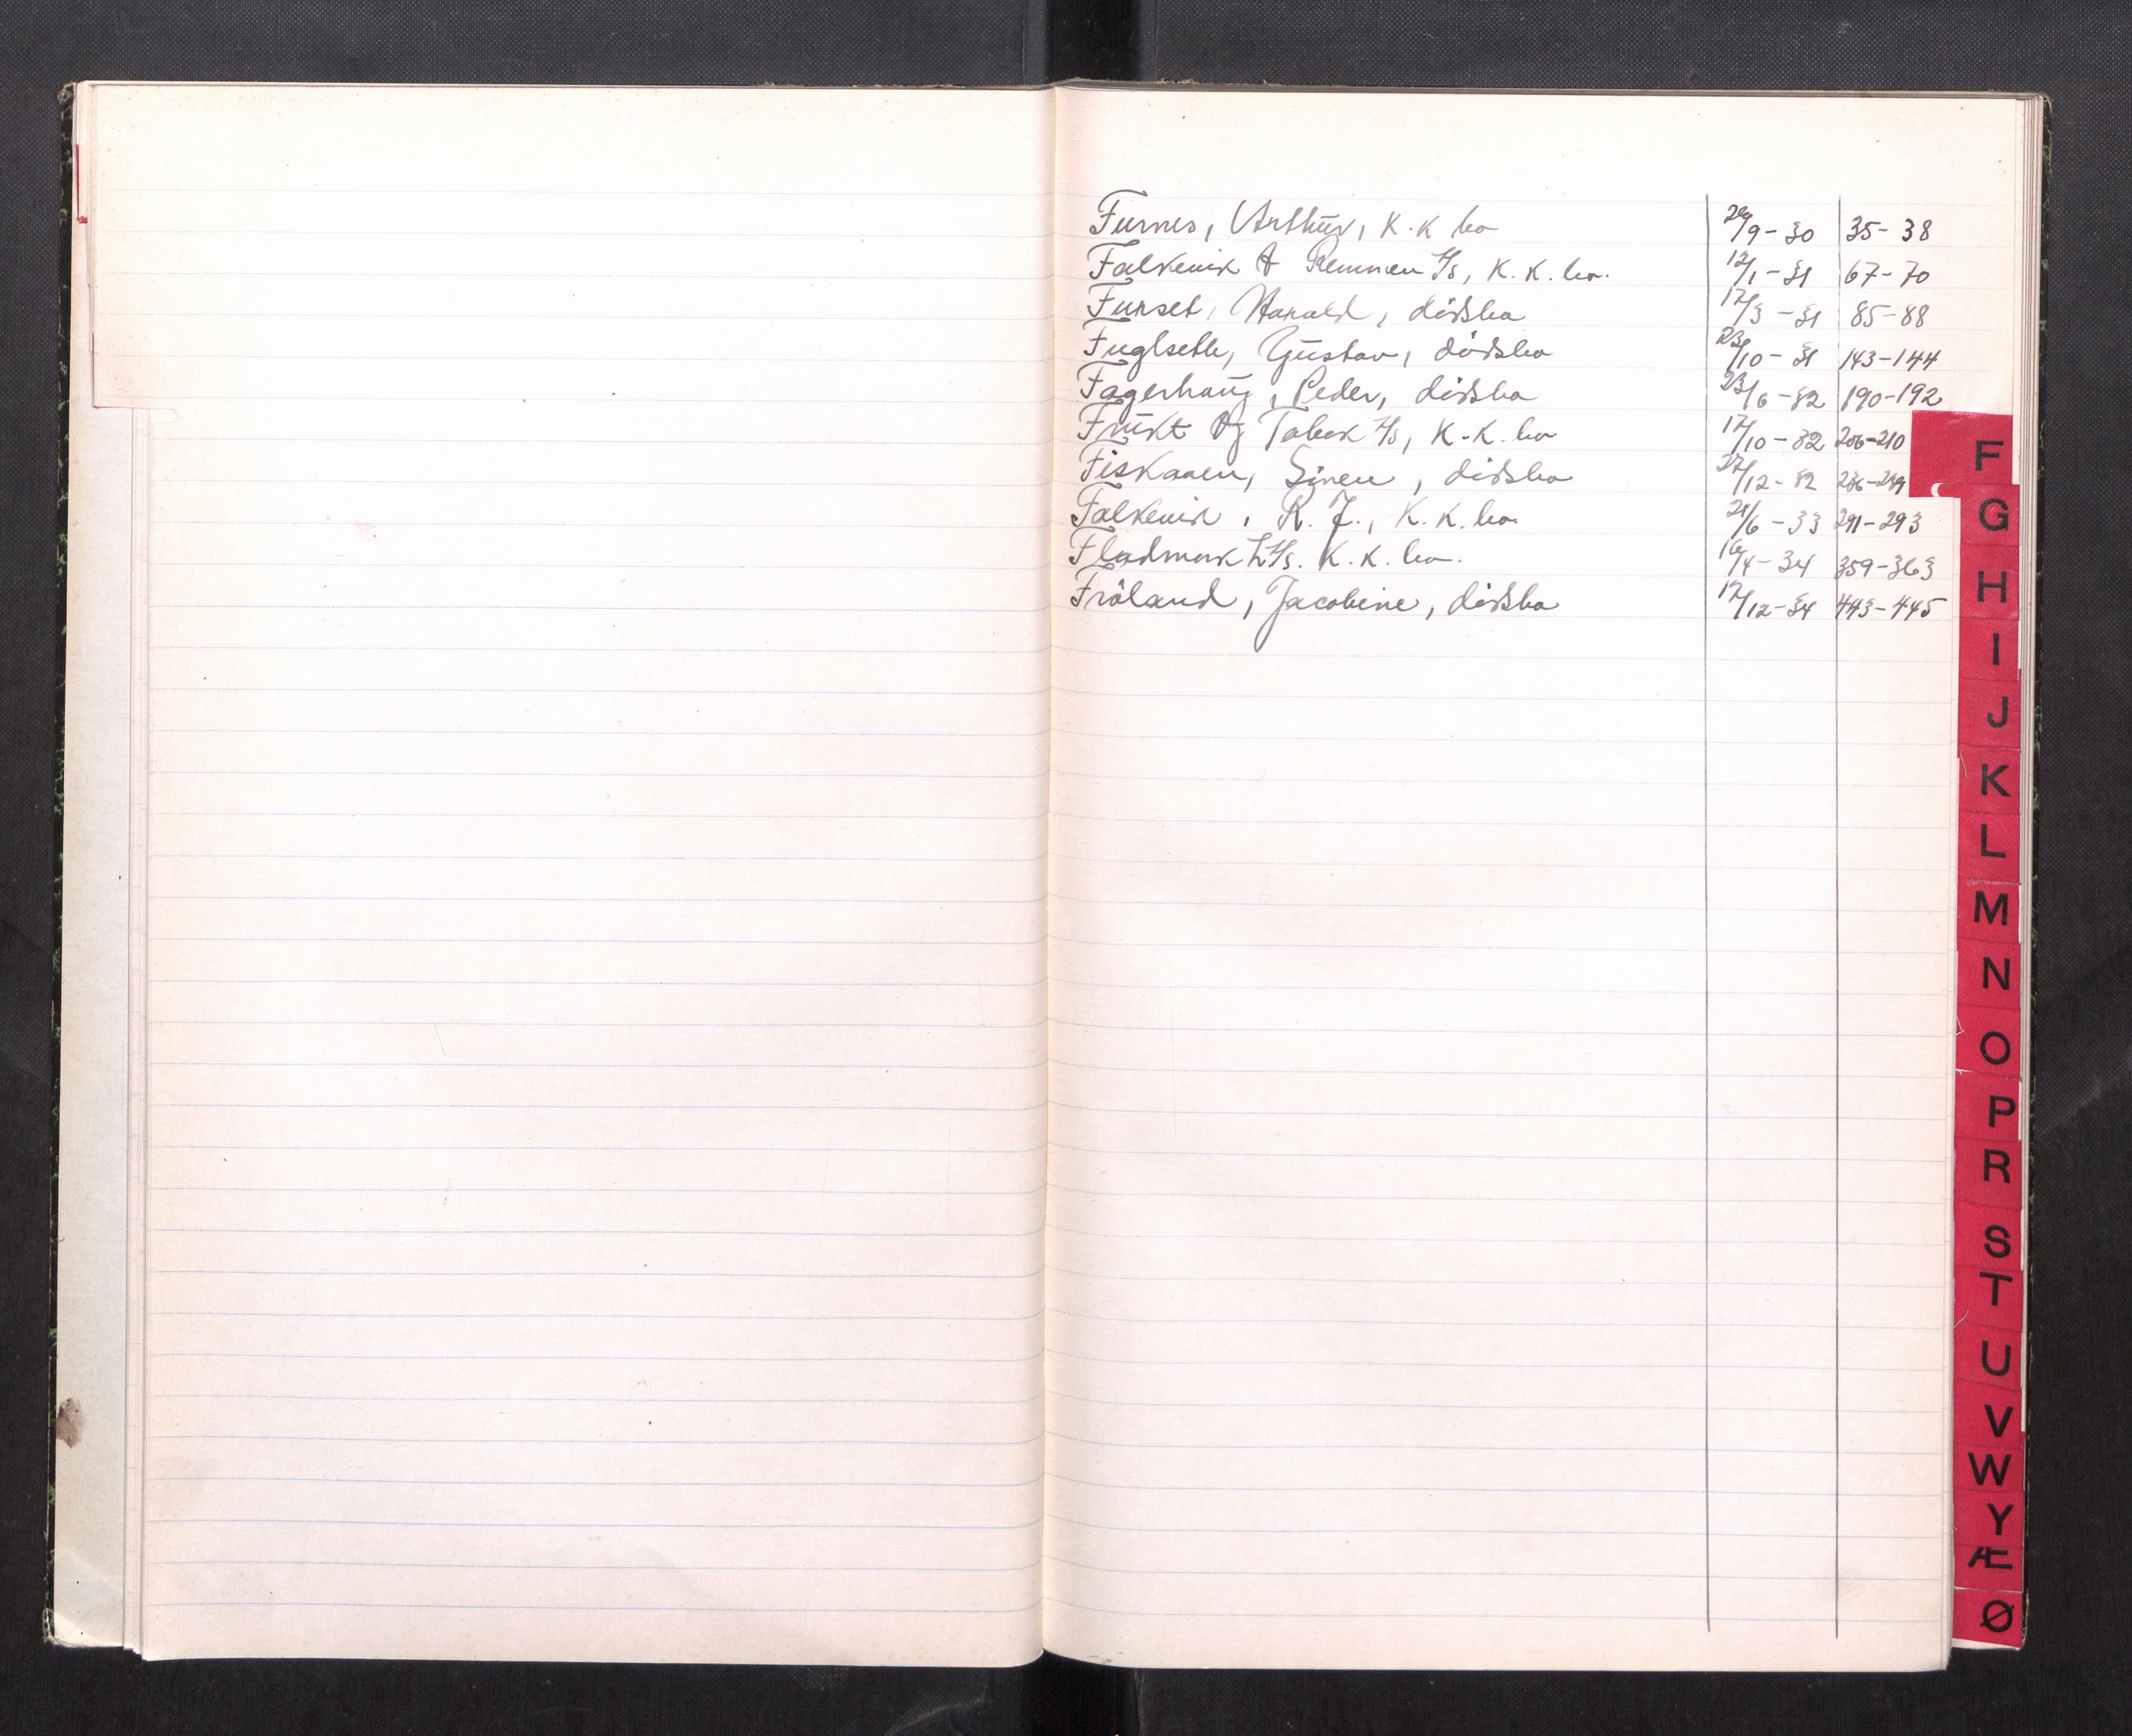 Furnes, Arthur, K.K bo 29/9-30 35-38
Falkevik & Remmen A/s, K.K. bo. 12/1-31 67-70
Furset, Harald, dødsbo 17/3-31 85-88
Fuglseth, Gustav, dødsbo 23/10-31 143-144
Fagerhaug, Peder, dødsbo 23/6-32 190-192
Frukt og Tobak A/s, K.K. bo 17/10-32 206-210
Fiskaaen, Sivert, dødsbo 27/12-32
Falkevik, R. J., K.K. bo. 21/6-33 291-293
Fladmark A/s. K.K. bo. 16/4-34 359-363
Frøland, Jacobine, dødsbo 17/12-34 443-445
F
G
H
I
J
K
L
M
N
O
P
R
S
T
U
V
W
Y
Æ
Ø